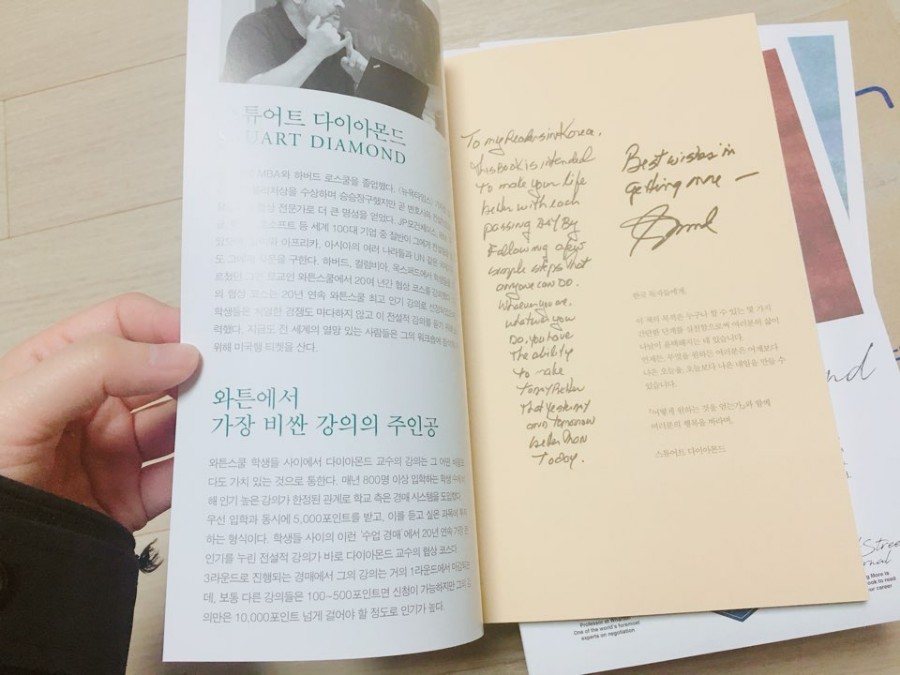 튜어트 다이아몬드
UART DIAMOND
MBA와 하버드 로스쿨을 졸업했다. 〈뉴욕타임스〉
상을 수상하며 승승장구했지만 곧 변호사와
전문가로 더 큰 명성을 얻었다. JP모건체이스,
소프트 등 세계 100대 기업 중 절반이 그에게
아프리카, 아시아의 여러 나라들과 UN 같은
을 구한다. 하버드, 컬럼비아, 옥스퍼드에서
모교인 와튼스쿨에서 20여 년간 협상 코스를
의 협상 코스는 20년 연속 와튼스쿨 최고 인기 강의로
학생들은 치열한 경쟁도 마다하지 않고 이 전설적 강의를 듣기
력했다. 지금도 전 세계의 영향력 있는 사람들은 그의 워크숍에
위해 미국행 티켓을 산다.
와튼에서
가장 비싼 강의의 주인공
와튼스쿨 학생들 사이에서 다이아몬드 교수의 강의는 그 어떤
다도 가치 있는 것으로 통한다. 매년 800명 이상 입학하는 학생
해 인기 높은 강의가 한정된 관계로 학교 측은 경매 시스템을 도입했다.
우선 입학과 동시에 5,000포인트를 받고, 이를 듣고 싶은 과목에
하는 형식이다. 학생들 사이의 이런 '수업 경매'에서 20년 연속 가장
인기를 누린 전설적 강의가 바로 다이아몬드 교수의 협상 코스다.
3라운드로 진행되는 경매에서 그의 강의는 거의 1라운드에서
데, 보통 다른 강의들은 100~500포인트면 신청이 가능하지만 그의
의만은 10,000포인트 넘게 걸어야 할 정도로 인기가 높다.
To my Readers in Korea.
This Book is intended
to make your life
better with each
passing DAY By
Following a few
simple steps that
anyone can DO.
Whoever you are,
whatever you
Do, you have
The ability
to make
Today Better
Than yesterday
and tomorrow
better than
Today.
Best wishes in
getting more —
한국 독자들에게.
이 책의 목적은 누구나 할 수 있는 몇 가지
간단한 단계를 실천함으로써 여러분의 삶이
나날이 윤택해지는 데 있습니다.
언제든, 무엇을 원하든 여러분은 어제보다
나은 오늘을, 오늘보다 나은 내일을 만들 수
있습니다.
『어떻게 원하는 것을 얻는가』와 함께
여러분의 행복을 바라며,
스튜어트 다이아몬드
Professor at
One of the world's foremost
experts on negotiation